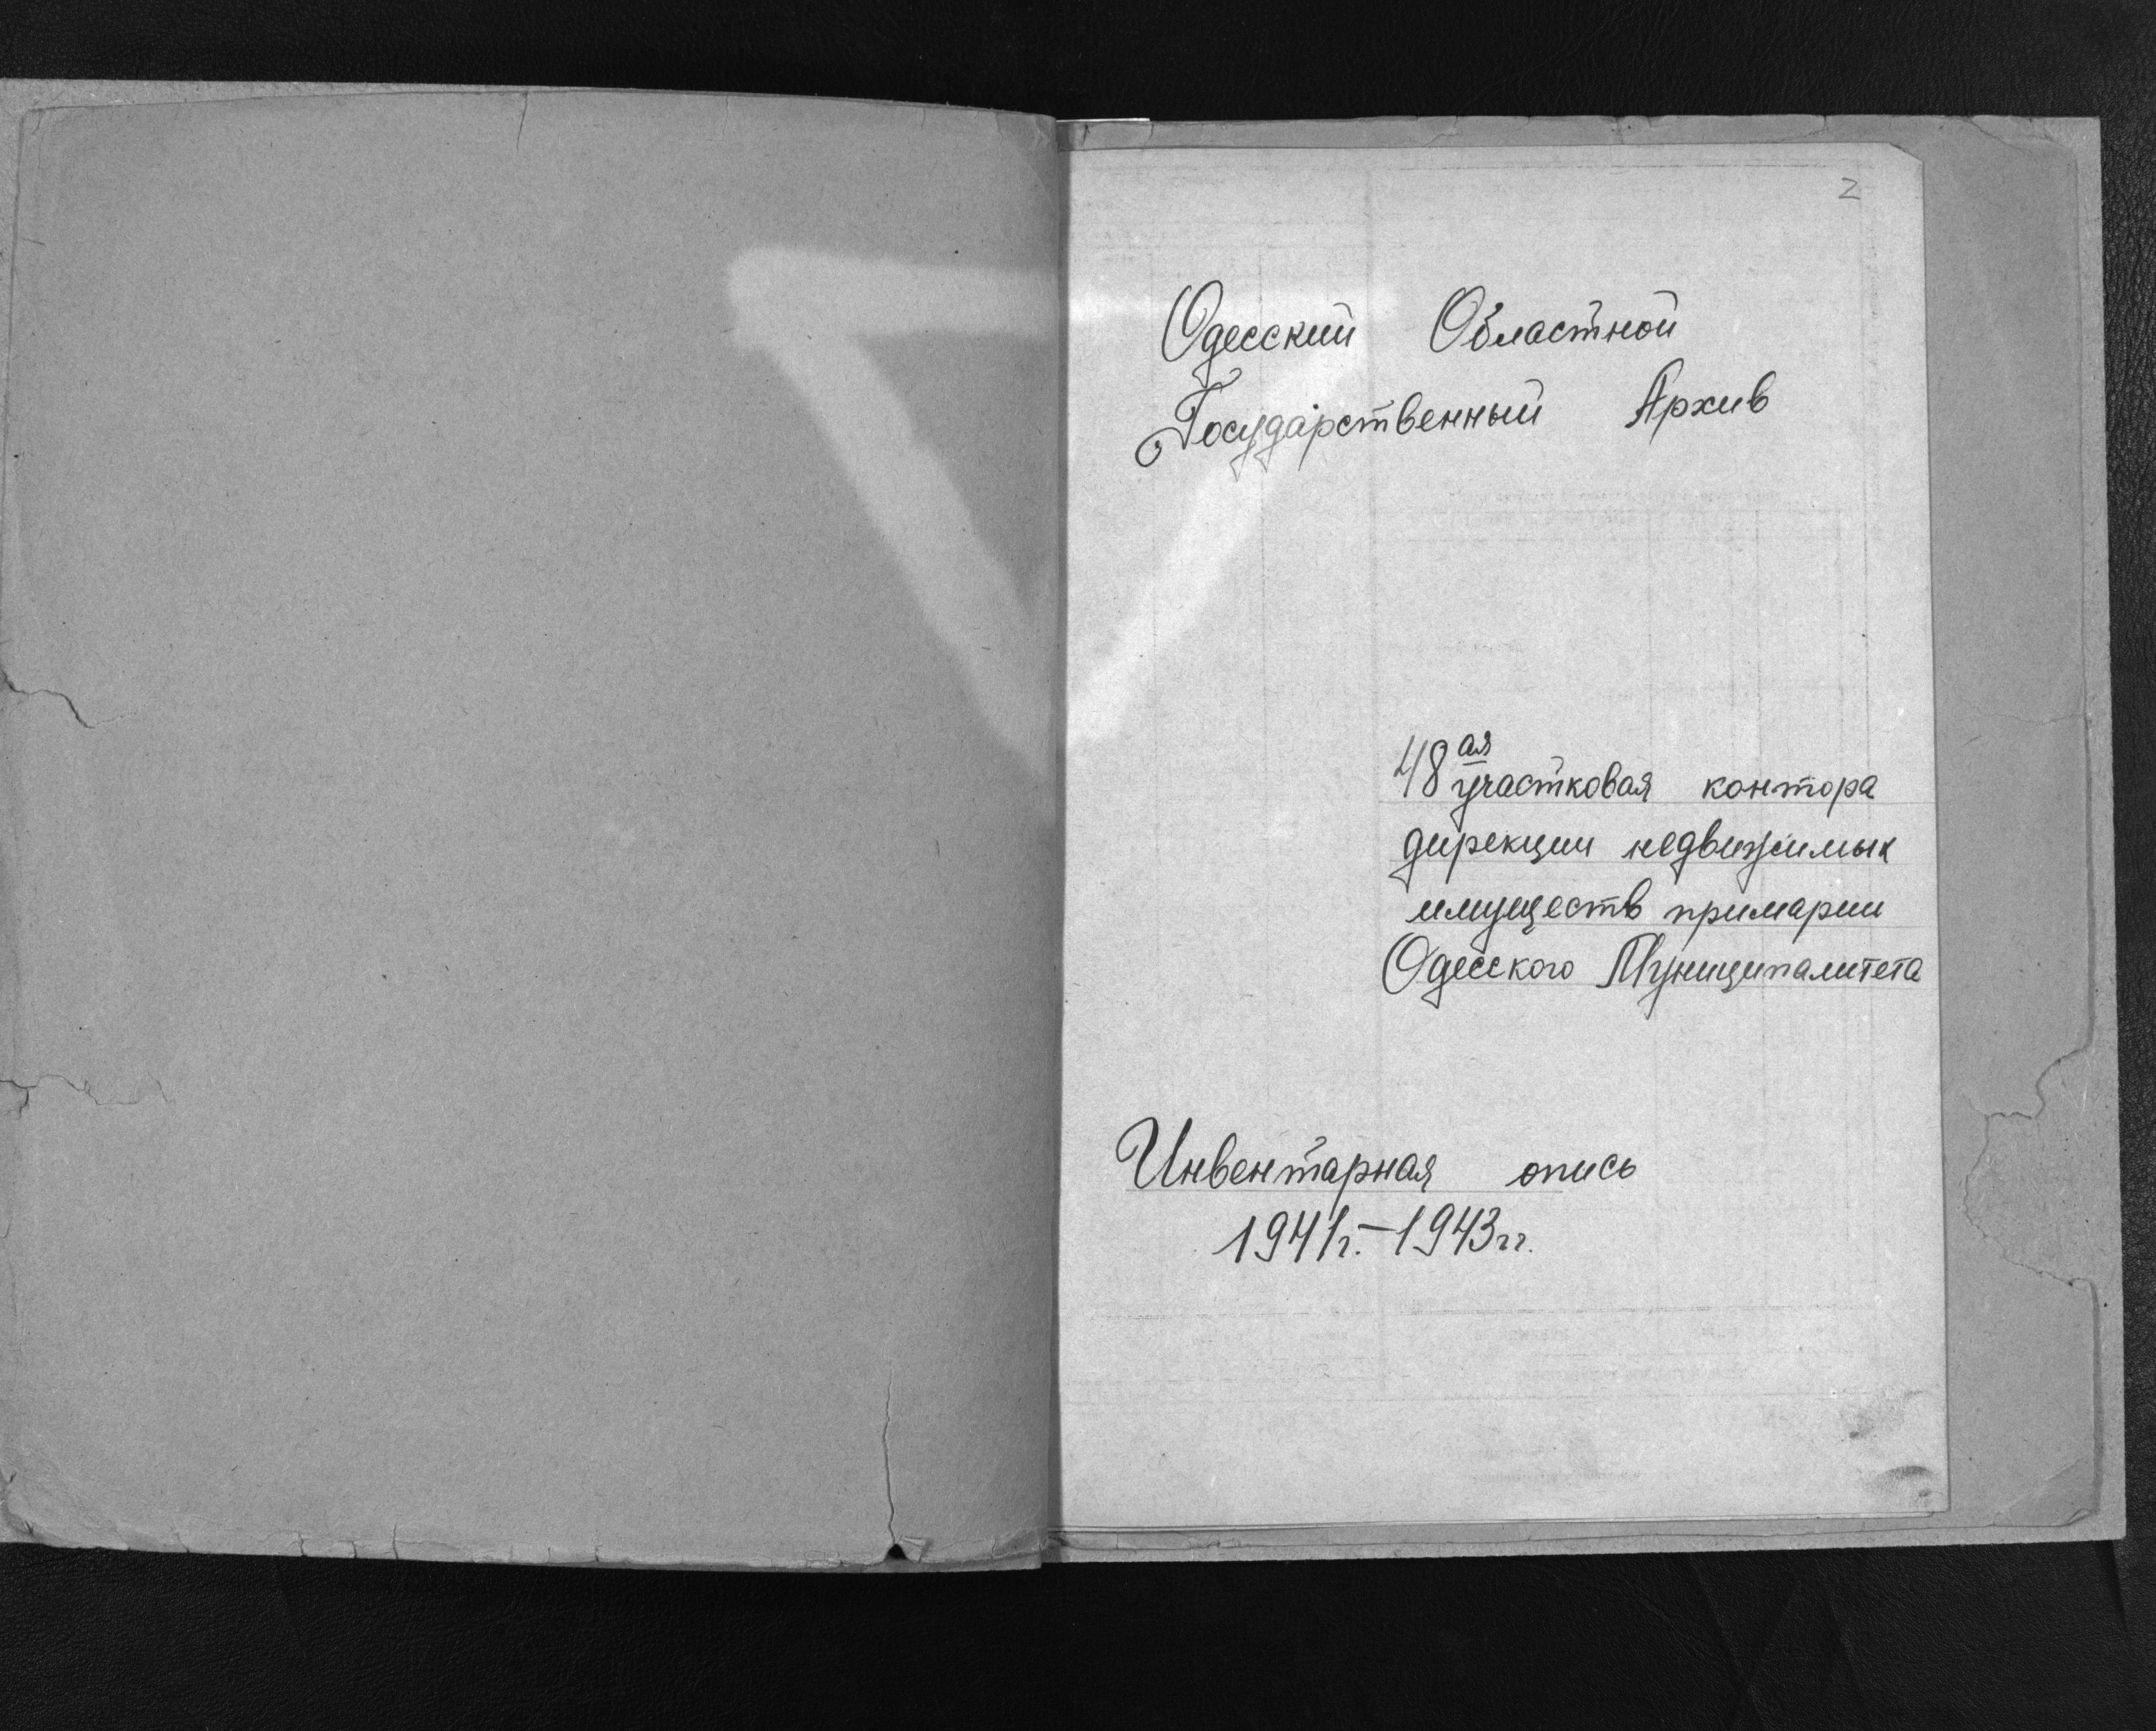 2
Одесский Областной
Государственный Архив
48ая участковая контора
дирекции недвижимых
имуществ примарии
Одесского Муниципалитета
Инвентарная опись
1941г.-1943гг.